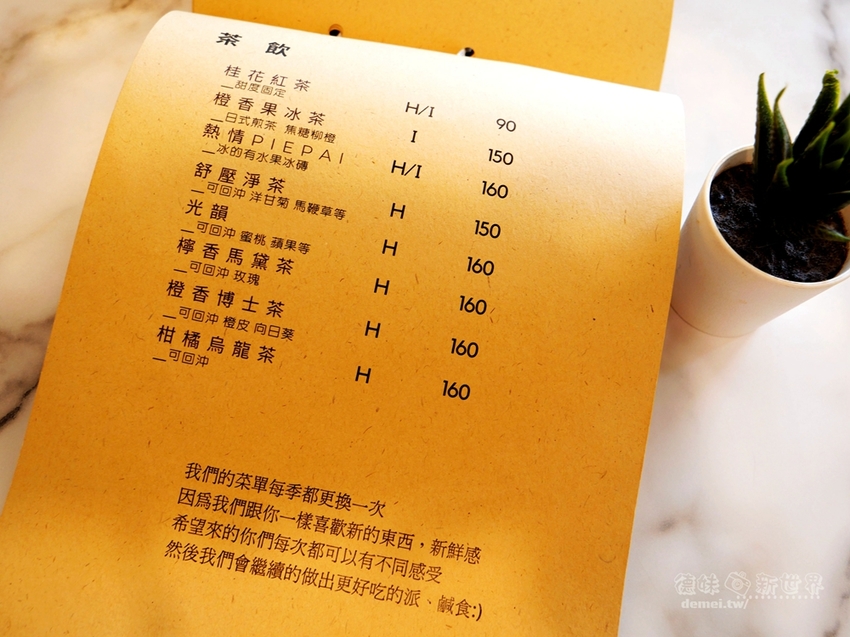 茶飲
桂花紅茶 H/I 90
—甜度固定
橙香果冰茶 I 150
—日式煎茶 焦糖柳橙
熱情PIEPAI H/I 160
—冰的有水果冰磚
舒壓淨茶 H 150
—可回沖 洋甘菊 馬鞭草等
光韻 H 160
—可回沖 蜜桃 蘋果等
檸香馬黛茶 H 160
—可回沖 玫瑰
橙香博士茶 H 160
—可回沖 橙皮 向日葵
柑橘烏龍茶 H 160
—可回沖
我們的菜單每季都更換一次
因為我們跟你一樣喜歡新的東西，新鮮感
希望來的你們每次都可以有不同感受
然後我們會繼續的做出更好吃的派、鹹食:)
德味新世界
demei.tw/